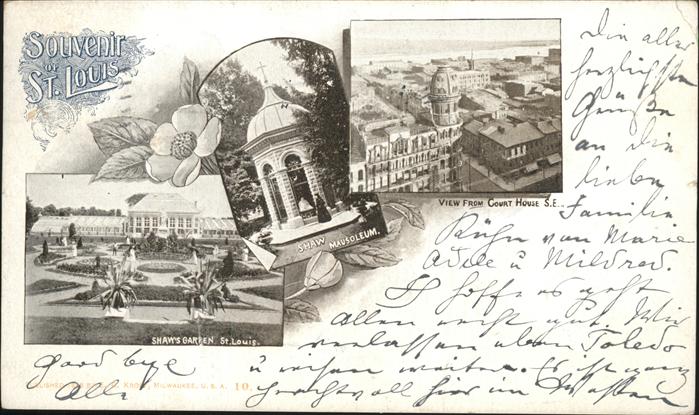 Souvenir
OF
St. Louis
VIEW FROM COURT HOUSE S.E.
SHAW MAUSOLEUM.
SHAW'S GARDEN St. Louis.
Die aller
herzlichsten
Grüße
an die
lieben
Familie
Kühn von Marie
Adele u Mildred.
Ich hoffe es geht
allen recht gut. Wir
verlassen eben Toledo
u reisen weiter. Es ist ganz
prachtvoll hier im Westen
Good bye
Alle
MILWAUKEE, U. S. A. 10.